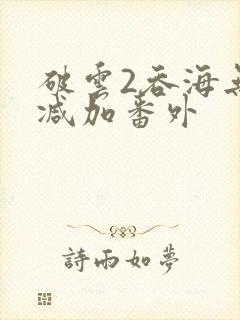 破雲2吞海無
减加番外
詩雨如夢